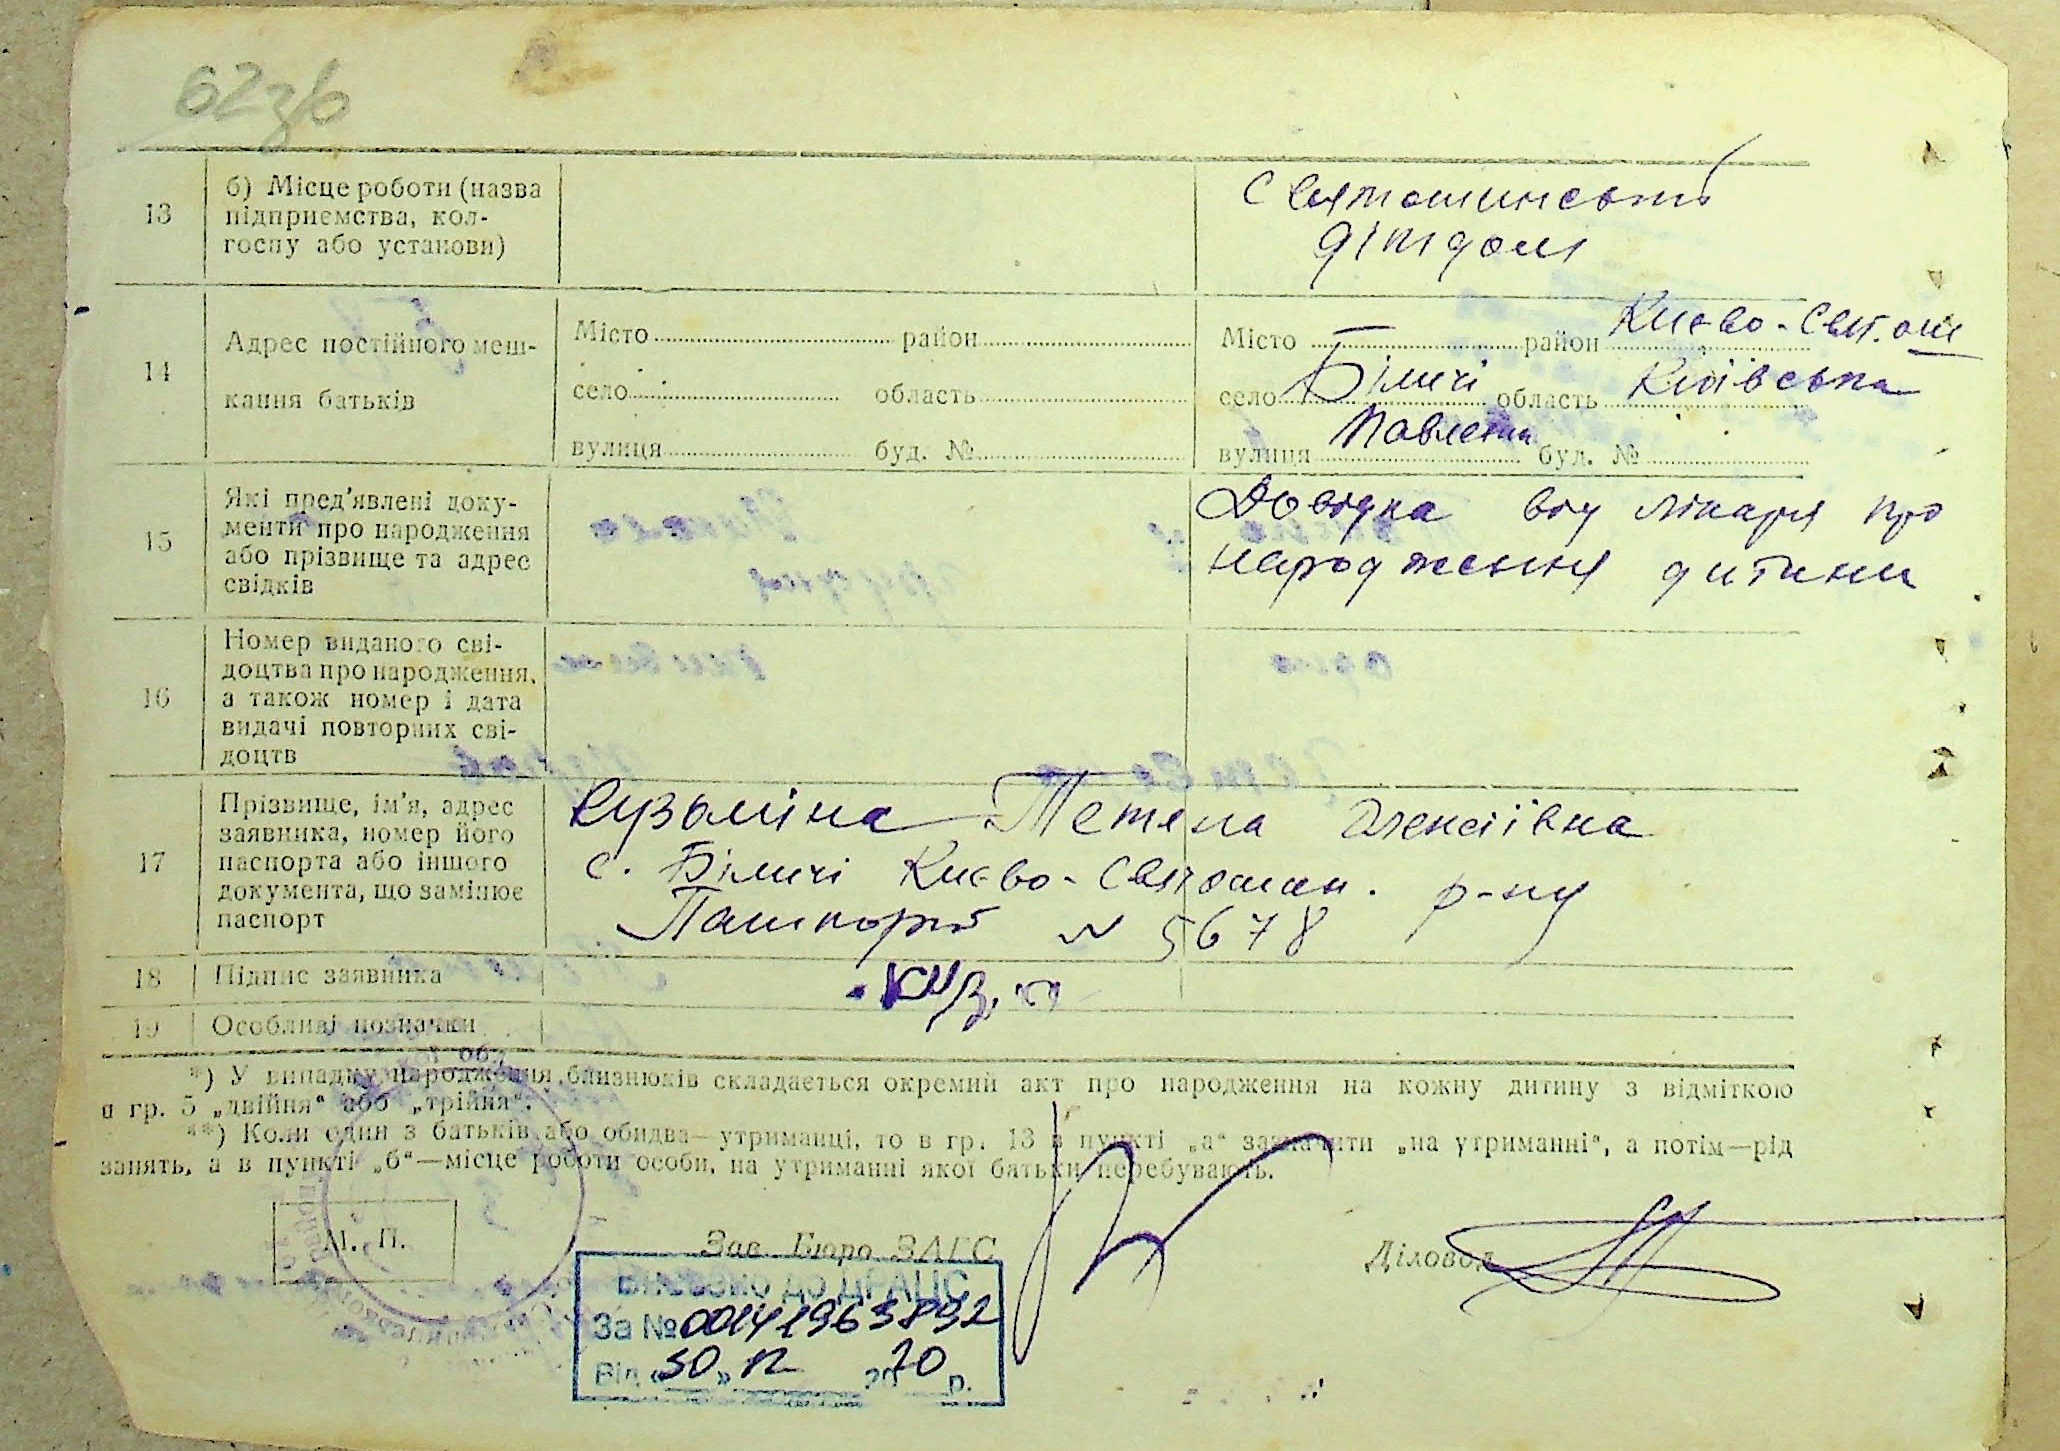 62зв
13
б) Місце роботи (назва
підприємства, кол-
госпу або установи)
Святошинський
дітдом
14
Адрес постійного меш-
кання батьків
Місто район
село область
вулиця буд. №
Місто — район Києво-Свят.ош
село Біличі область Київська
вулиця буд. №
15
Які пред'явлені доку-
менти про народження
або прізвище та адрес
свідків
Довідка від лікаря про
народження дитини
16
Номер виданого сві-
доцтва про народження,
а також номер і дата
видачі повторних сві-
доцтв
17
Прізвище, ім'я, адрес
заявника, номер його
паспорта або іншого
документа, що замінює
паспорт
Кузьміна Тетяна Олексіївна
с. Біличі Києво-Святошин. р-ну
Пашпорт № 5678
18 Підпис заявника
Куз
19 Особливі позначки
*) У випадку народження близнюків складається окремий акт про народження на кожну дитину з відміткою
в гр. 5 „двійня“ або „трійня“.
**) Коли один з батьків або обидва—утриманці, то в гр. 13 в пункті „а“ зазначити „на утриманні“, а потім—рід
занять, а в пункті „б“—місце роботи особи, на утриманні якої батьки перебувають.
М. П.
Зав. Бюро ЗАГС
Діловод
Внесено до ДРАЦС
За № 00141963892
Від «30» 12 2020 р.